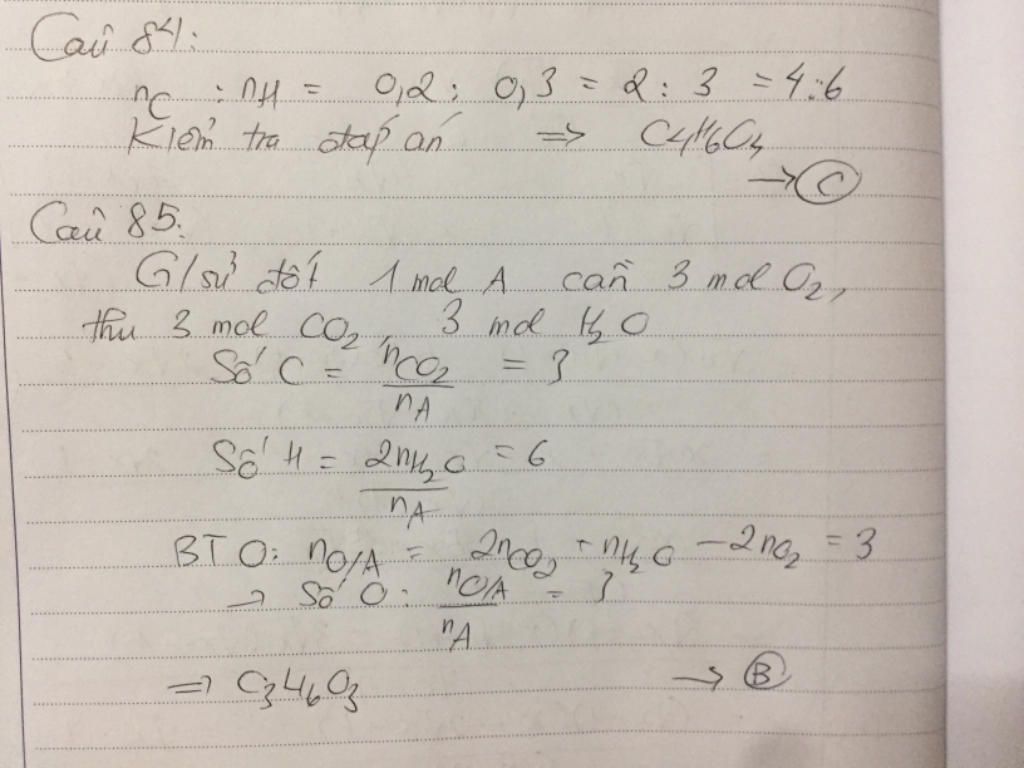 Câu 84:
nC : nH = 0,2 : 0,3 = 2 : 3 = 4:6
Kiểm tra đáp án => C4H6O4
→ C
Câu 85:
G/sử đốt 1 mol A cần 3 mol O2,
thu 3 mol CO2, 3 mol H2O
Số C = nCO2 / nA = 3
Số H = 2nH2O / nA = 6
BT O: nO/A = 2nCO2 + nH2O - 2nO2 = 3
→ Số O: nO/A / nA = 3
=> C3H6O3 → B